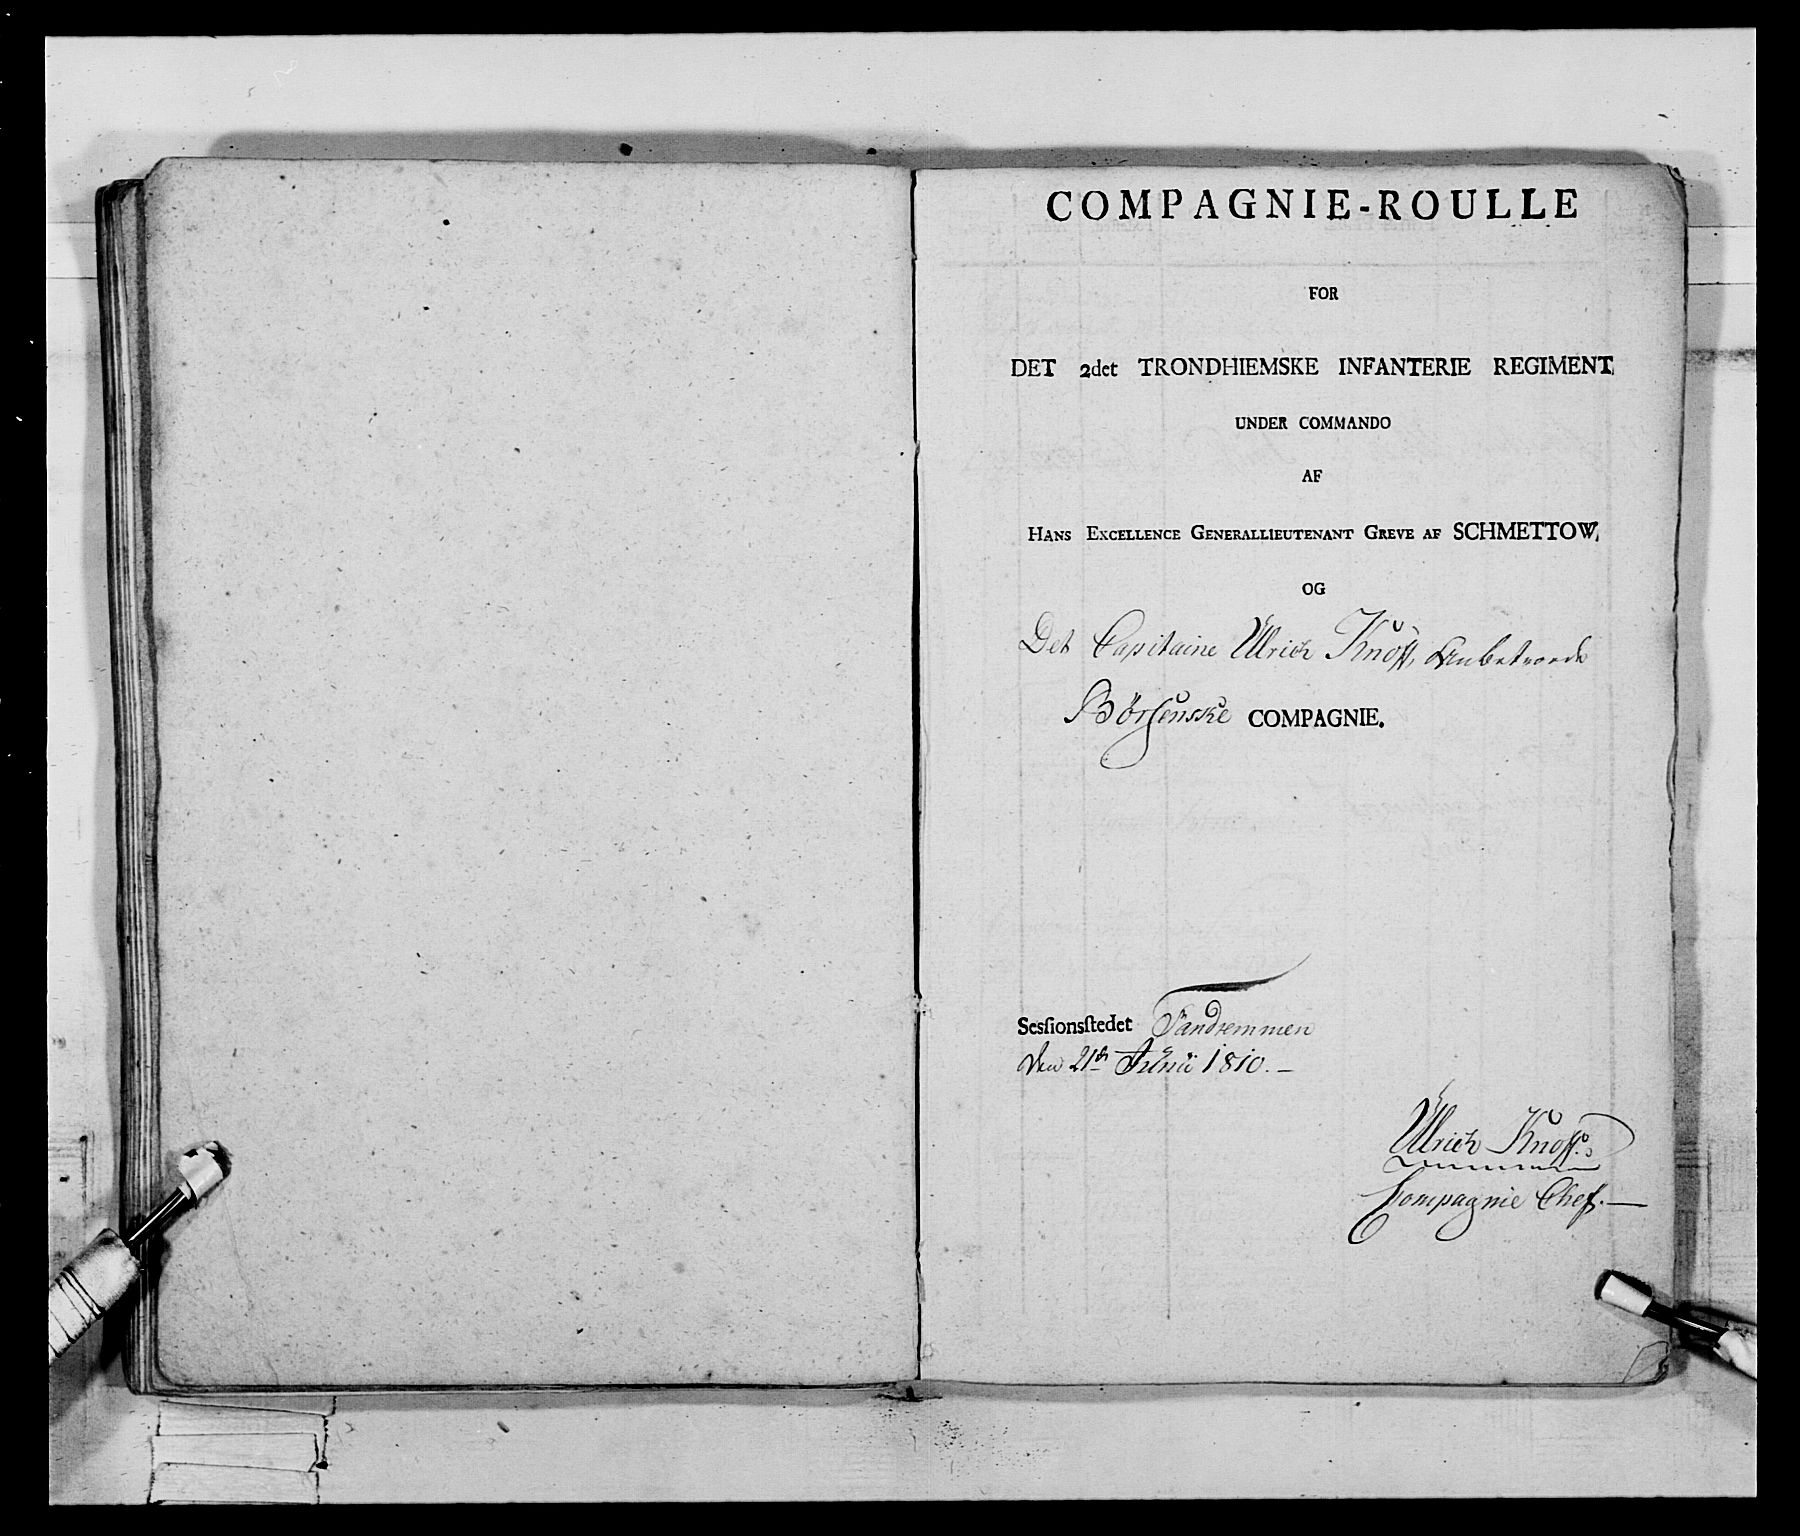 COMPAGNIE-ROULLE
FOR
DET 2det TRONDHIEMSKE INFANTERIE REGIMENT,
UNDER COMMANDO
AF
HANS EXCELLENCE GENERALLIEUTENANT GREVE AF SCHMETTOW,
OG
Det Capitaine Ulrich Knoff, Anbetroede
Börsenske COMPAGNIE.
Sesſionsſtedet Sandremmen
den 21de Junii 1810. —
Ulrich Knoff.
Compagnie Chef. —